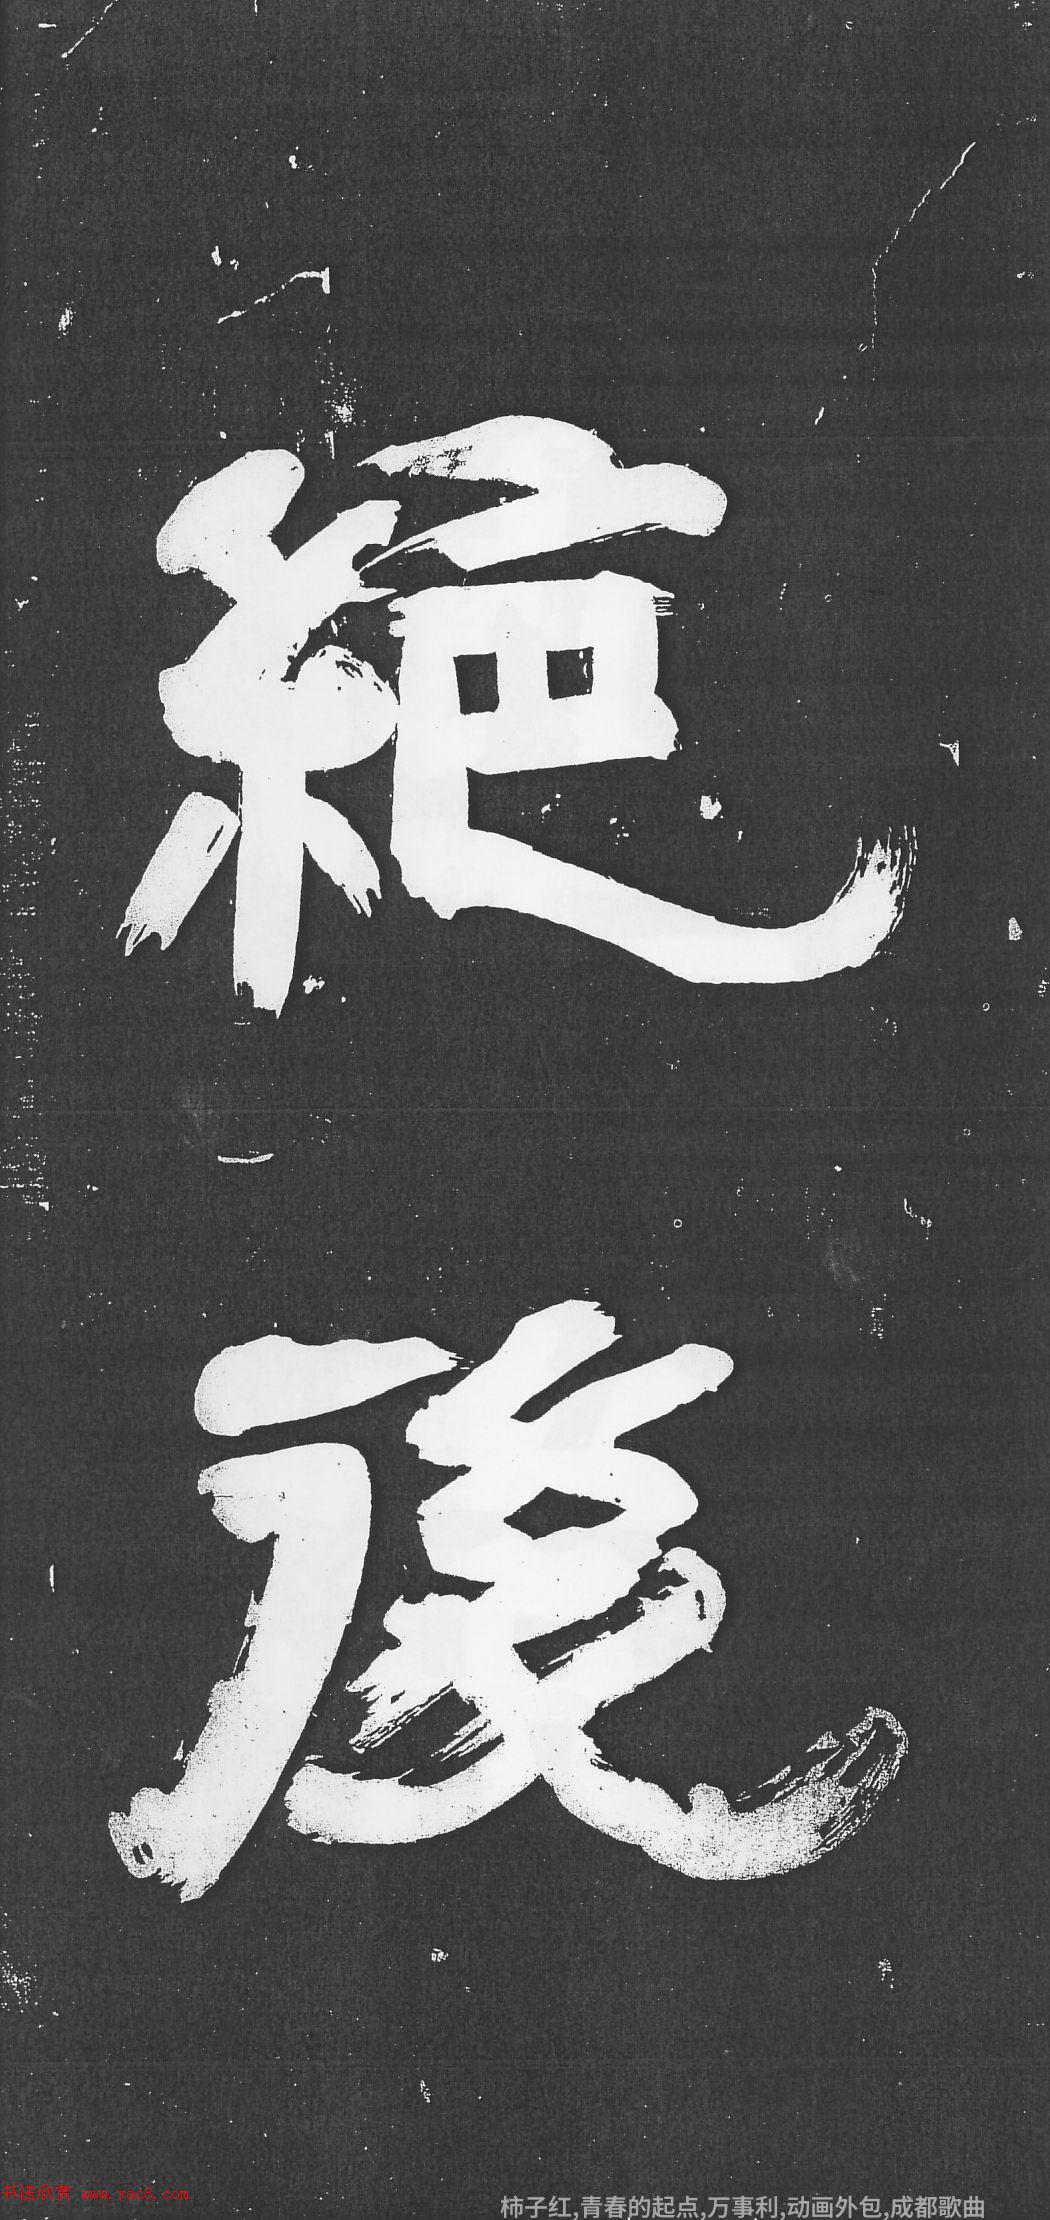 絶
後
书法欣赏 www.yac8.com
柿子红,青春的起点,万事利,动画外包,成都歌曲